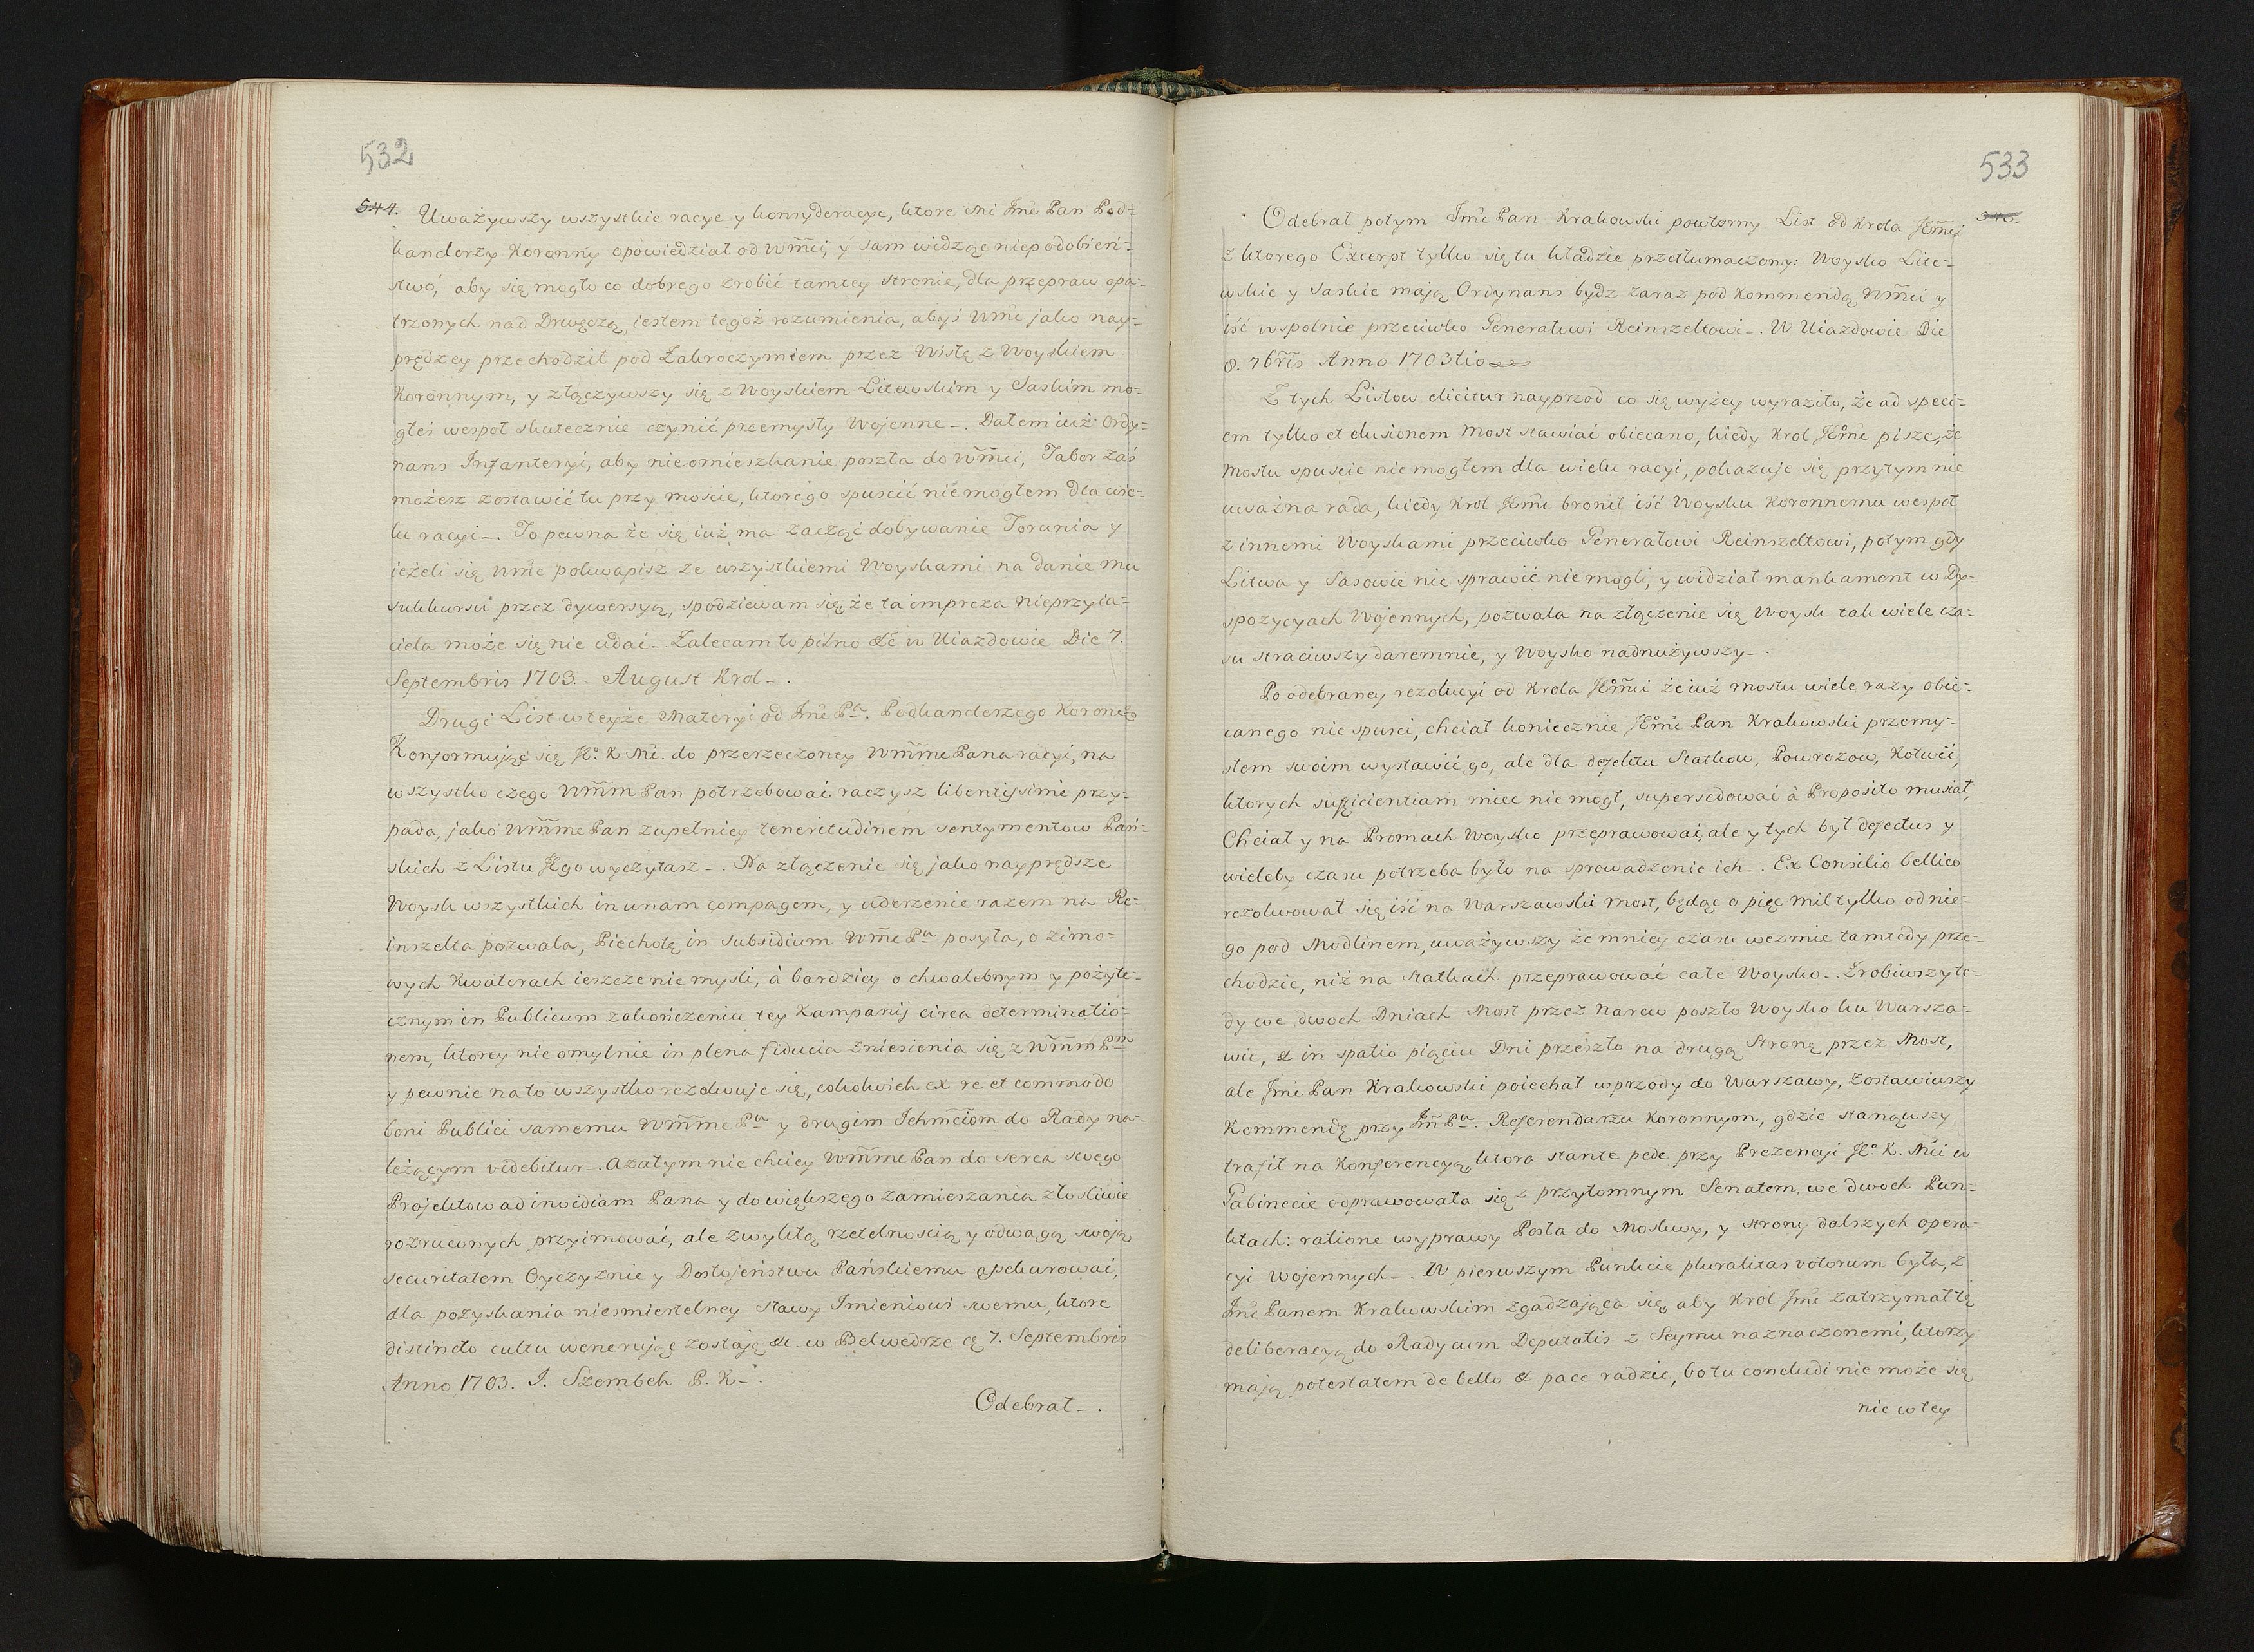 532
544. Uważywszy wszystkie racye y konsyderacye, ktore mi Jmć Pan Pod=
kanclerzy Koronny opowiedział od Wm̃ci, y sam widząc niepodobień=
stwo, aby się mogło co dobrego zrobić tamtey stronie, dla przepraw opa=
trzonych nad Drwęczą, iestem tegoż rozumienia, abyś Wmć jako nay=
prędzey przechodził pod Zakroczymiem przez Wisłę z Woyskiem
Koronnym, y złączywszy się z Woyskiem Litewskim y Saskim mo=
głeś wespoł skutecznie czynić przemysły Wojenne-. Dałem iuż Ordy=
nans Infanteryi, aby nieomieszkanie poszła do Wm̃ci, Tabor zaś
możesz zostawić tu przy moscie, ktorego spuscić niemogłem dla wie=
lu racyi-. To pewna że się iuż ma zacząć dobywanie Torunia y
ieżeli się Wmć pokwapisz ze wszystkiemi Woyskami na danie mu
sukkursu przez dywersyą, spodziewam się, że ta impreza nieprzyia=
ciela może się nie udać-. Zalecam to pilno &c̃ w Uiazdowie Die 7.
Septembris 1703.- August Krol-.
Drugi List w teyże Materyi od Jmć Pa. Podkanclerzego Koronego
Konformując się Jo. K. Mć. do przerzeczoney Wm̃me Pana racyi, na
wszystko czego Wm̃m Pan potrzebować raczysz libentissime przy=
pada, jako Wm̃me Pan zupełniey teneritudinem sentymentow Pań=
skich z Listu Jego wyczytasz-. Na złączenie się jako nayprędsze
Woysk wszystkich in unam compagem, y uderzenie razem na Re=
inszelta pozwala, Piechotę in subsidium Wm̃e Pu posyła, o zimo=
wych Kwaterach ieszcze nie mysli, à bardziey o chwalebnym y pożyte=
cznym in Publicum zakończeniu tey Kampanij circa determinatio=
nem, ktorey nie omylnie in plena fiducia zniesienia się z Wm̃m Pm
y pewnie na to wszystko rezolwuje się, cokolwiek ex re et commodo
boni Publici samemu Wm̃me Pu y drugim Ichmciom do Rady na=
leżącym videbitur-. A zatym nie chciey Wm̃me Pan do serca swego
Projektow ad invidiam Pana y do większego zamieszania złosliwie
rozruconych przyimować, ale zwykłą rzetelnoscią y odwagą swoją
securitatem Oyczyznie y Dostojeństwu Pańskiemu assekurować,
dla pozyskania niesmiertelney sławy Imieniowi swemu, ktore
distincto cultu wenerując zostaję &c. w Belwedrze ą 7. Septembris
Anno 1703. J. Szembek P. K-.
Odebrał-.
533
Odebrał potym Jmć Pan Krakowski powtorny List od Krola Jem̃ci
z ktorego Excerpt tylko się tu kładzie przetłumaczony: Woysko Lite=
wskie y Saskie mają Ordynans bydz zaraz pod Kommendą Wm̃ci y
iść wspolnie przeciwko Generałowi Reinszeltowi-. W Uiazdowie Die
8. 7br̃is Anno 1703tio
Z tych Listow elicitur nayprzod co się wyżey wyraziło, że ad speci=
em tylko et elusionem Most stawiać obiecano, kiedy Krol Jeo̊mć pisze, że
Mostu spuscic nie mogłem dla wielu racyi, pokazuje się przytym nie
uważna rada, kiedy Krol Jmć bronił iść Woysku Koronnemu wespoł
z innemi Woyskami przeciwko Generałowi Reinszeltowi, potym gdy
Litwa y Sasowie nic sprawić nie mogli, y widział mankament w Dy=
spozycyach Wojennych, pozwala na złączenie się Woysk tak wiele cza=
su straciwszy daremnie, y Woysko nadnużywszy-.
Po odebraney rezolucyi od Krola Jeo̊m̃ci że iuż mostu wiele razy obie=
canego nie spusci, chciał koniecznie Jeo̊mć Pan Krakowski przemy=
słem swoim wystawić go, ale dla defektu Statkow, Powrozow, Kotwić,
ktorych sufficientiam miec nie mogł, supersedować à Proposito musiał,
Chciał y na Promach Woysko przeprawować, ale y tych był defectus y
wieleby czasu potrzeba było na sprowadzenie ich-. Ex Consilio bellico
rezolwował się iść na Warszawski most, będąc o pięć mil tylko od nie=
go pod Modlinem, uważywszy że mniey czasu wezmie tamtedy prze=
chodzic, niż na Statkach przeprawować całe Woysko-. Zrobiwszy te=
dy we dwoch Dniach Most przez Narew poszło Woysko ku Warsza=
wie, & in spatio pięciu Dni przeszło na drugą Stronę przez Most,
ale Jmć Pan Krakowski poiechał wprzody do Warszawy, zostawiwszy
Kommendę przy Jm̃ Pu. Referendarzu Koronnym, gdzie stanąwszy
trafił na Konferencyą, ktora stante pede przy Prezencyi Jo. K. Mći w
Gabinecie odprawowała się z przytomnym Senatem, we dwoch Pun=
ktach: ratione wyprawy Posła do Moskwy, y strony dalszych opera=
cyi Wojennych-. W pierwszym Punkcie pluralitas votorum była, z
Jmć Panem Krakowskim zgadzająca się, aby Krol Jmć zatrzymał tę
deliberacyą do Rady cum Deputatis z Seymu naznaczonemi, ktorzy
mają potestatem de bello & pace radzic, bo tu concludi nie może się
nie w tey